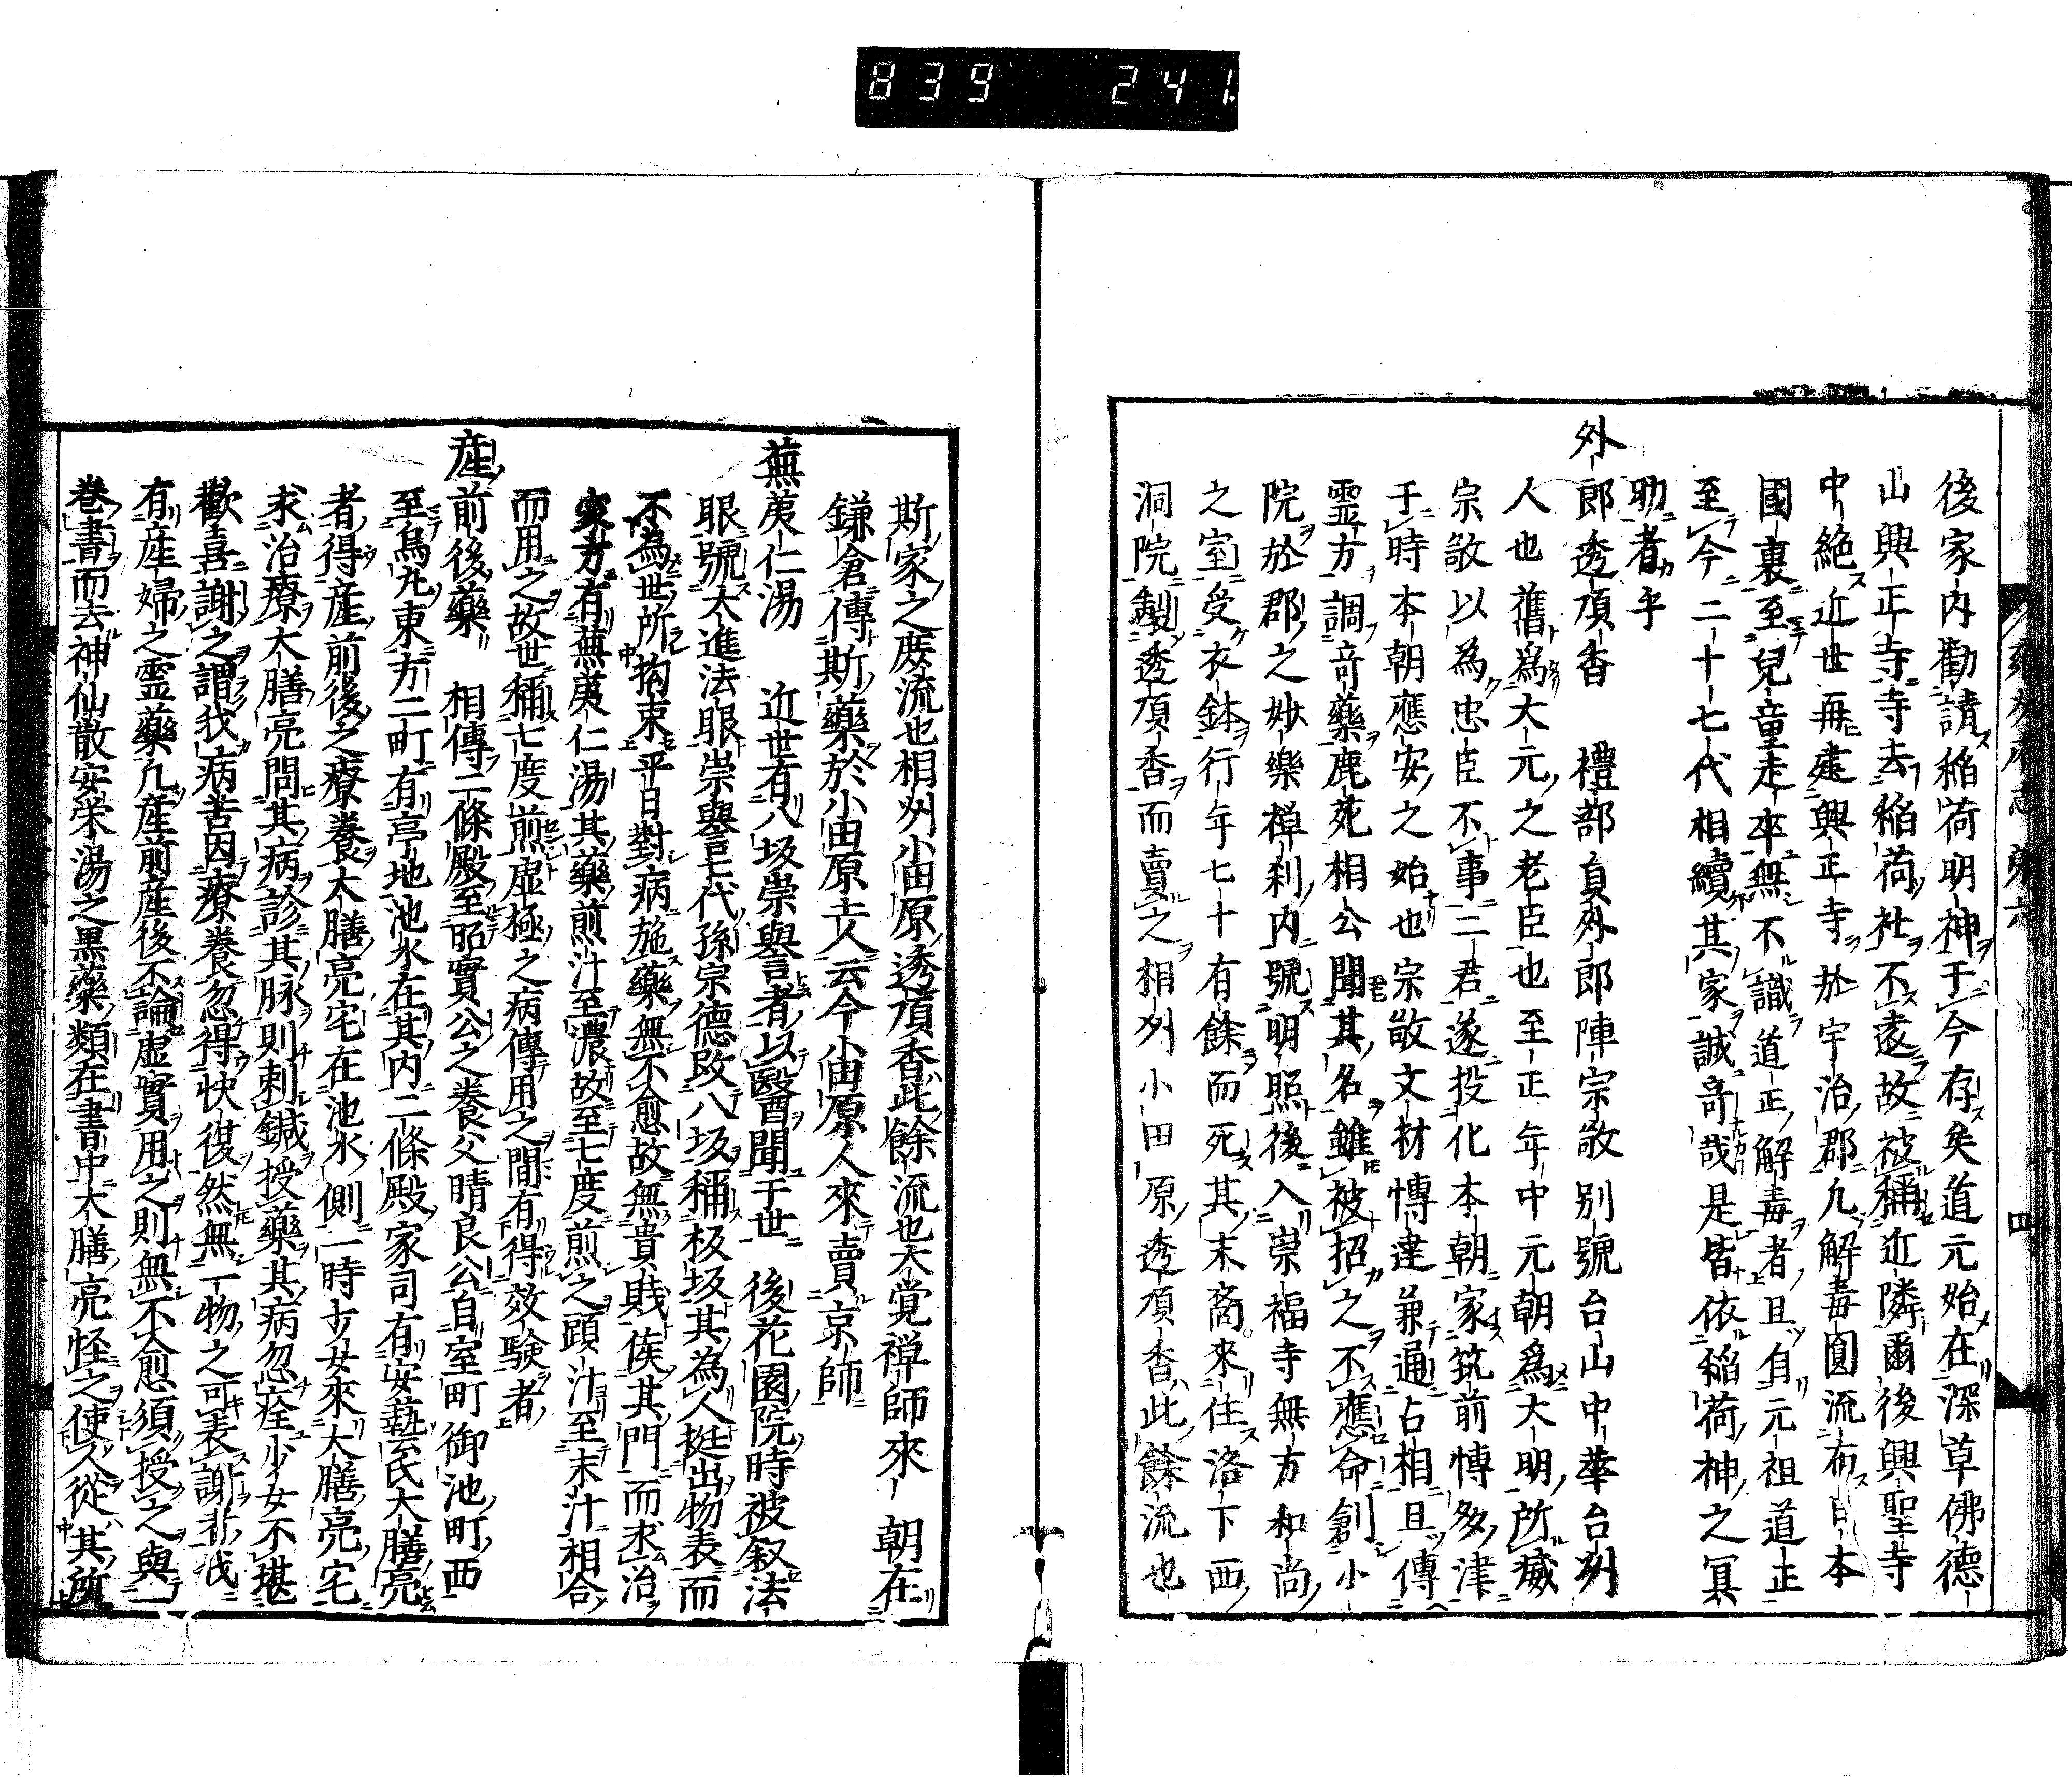 839 241
後家内勸請稲荷明神于今存矣道元始在深草佛德
山興正寺寺去稲荷社不遠故被稱近隣爾後興聖寺
中絶近世再建興正寺於宇治郡凢解毒圓流布日本
國裏至兒童走卒無不識道正解毒者且自元祖道正
至今二十七代相續其家誠奇哉是皆依稲荷神之冥
助者乎
外郎透頂香 禮部員外郎陣宗敬别號台山中華台州
人也舊爲大元之老臣也至正年中元朝爲大明所威
宗敬以為忠臣不事二君遂投化本朝家筑前愽多津
于時本朝應安之始也宗敬文材愽達兼通占相且傳
霊方調奇藥鹿苑相公聞其名雖被招之不應命創小
院於郡之妙樂禅刹内號明照後入崇福寺無方和尚
之室受衣鉢行年七十有餘而死其末裔來住洛下西
洞院製透頂香而賣之相州小田原透頂香此餘流也
斯家之庻流也相州小田原透頂香此餘流也大覚禅師來朝在
鎌倉傳斯藥於小田原士人云今小田原人來賣京師
蕪荑仁湯 近世有八坂崇譽者以醫聞于世 後花園院時被叙法
眼號大進法眼崇譽七代孫宗德改八坂稱板坂其為人挺出物表而
不為世所拘束平日對病施藥無不愈故無貴賎俟其門而求治
家方有蕪荑仁湯其藥煎汁至濃故至七度煎之頭汁至末汁相合
而用之故世稱七度煎虚極之病傳用之間有得效驗者
産前後藥 相傳二條殿至昭實公之養父晴良公自室町御池町西
至烏丸東方二町有亭地池水在其内二條殿家司有安藝氏大膳亮
者得産前後之療養大膳亮宅在池水側一時少女來大膳亮宅
求治療大膳亮問其病診其脉則刺鍼授藥其病忽痊少女不堪
歡喜謝之謂我病苦因療養忽得快復然無一物之可表謝於我
有産婦之霊藥凢産前産後不論虚實用之則無不愈須授之與一
巻書而去神仙散安栄湯之黒藥類在書中大膳亮怪之使人從其所